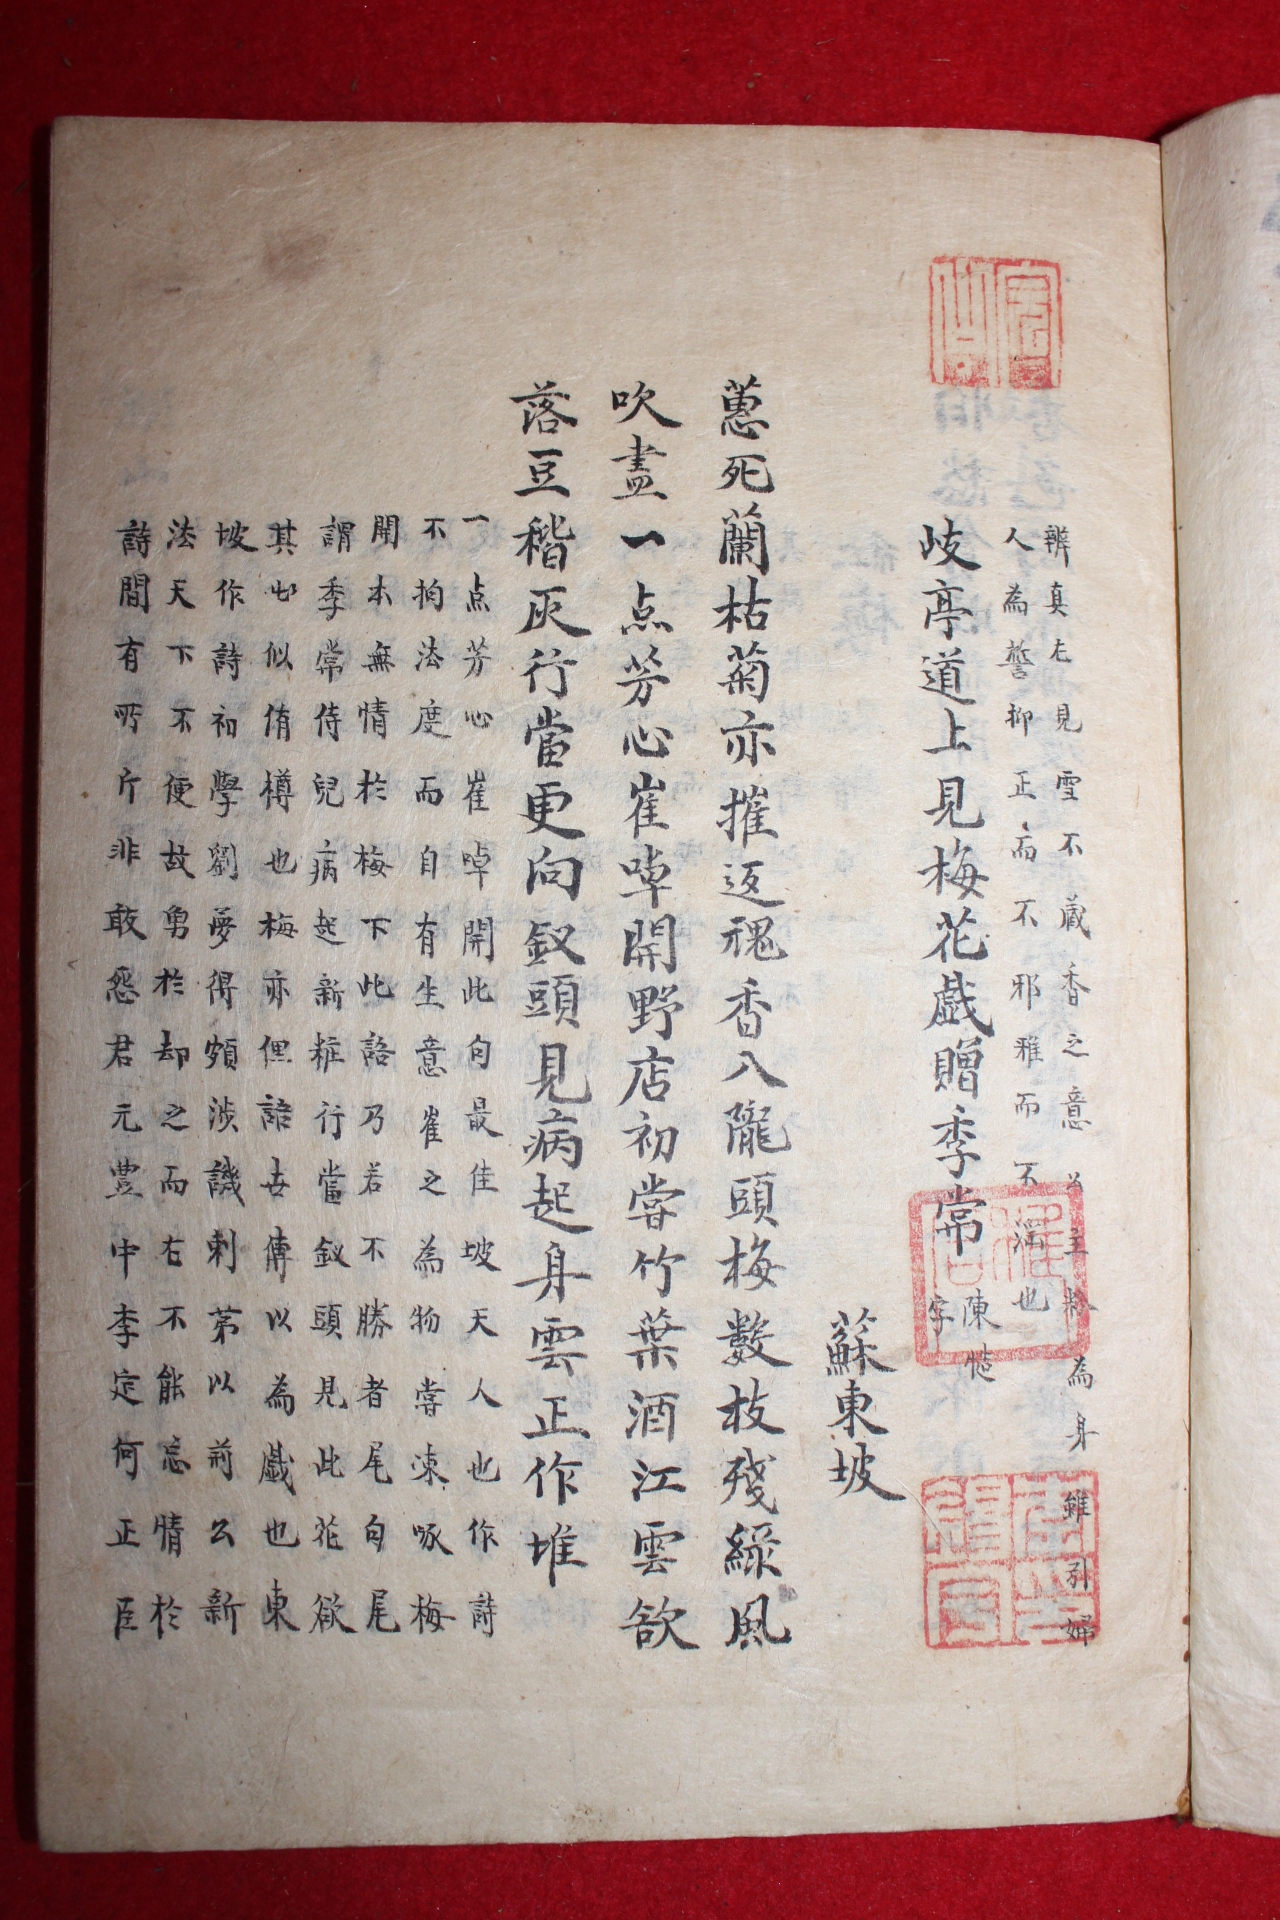 辨真尨見雪不蔵香之意公主粉為身雖引婦
人為譬抑正而不邪雅而不淫也
岐亭道上見梅花戯贈季常陳慥字
蘇東坡
蕙死蘭枯菊亦摧返魂香入隴頭梅數枝殘綠風
吹盡一点芳心雀啅開野店初嘗竹葉酒江雲欲
落豆稭灰行當更向釵頭見病起身雲正作堆
一点芳心雀啅開此句最佳坡天人也作詩
不拘法度而自有生意雀之為物嘗凍啄梅
開本無情於梅下此語乃若不勝者尾句尾
謂季常侍兒病起新粧行當釵頭見此花欲
其 似侑樽也梅亦俚語古傳以為戯也東
坡作詩初學劉夢得頗涉譏刺苐以荊公新
法天下不便故勇於却之而右不能忘情於
詩間有所斤非敢怨君元豊中李定何正臣